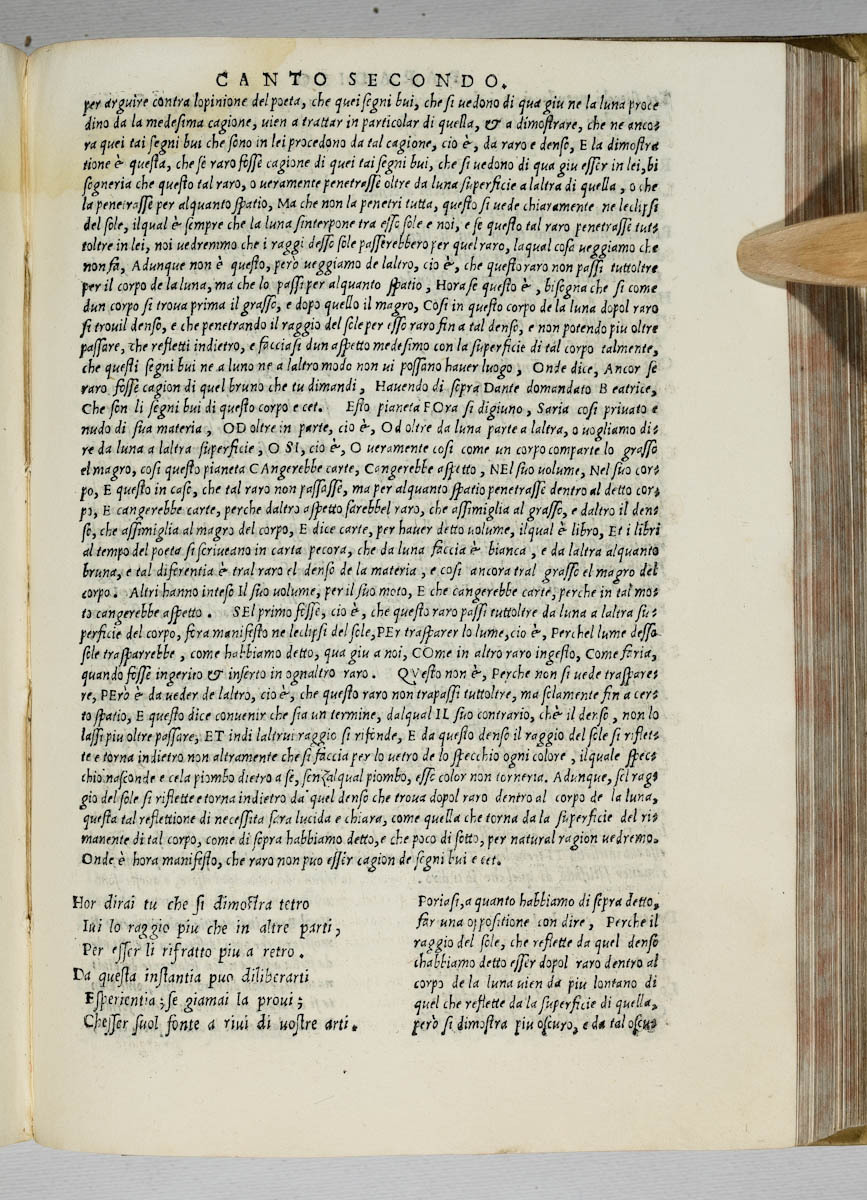 CANTO SECONDO.
per arguire contra lopinione del poeta, che quei segni bui, che si uedono di qua giu ne la luna proce
dino da la medesima cagione, uien a trattar in particolar di quella, & a dimostrare, che ne anco-
ra quei tai segni bui che sono in lei procedono da tal cagione, cio è, da raro e denso, E la dimostra
tione è questa, che se raro fosse cagione di quei tai segni bui, che si uedono di qua giu esser in lei, bi
segneria che questo tal raro, o ueramente penetresse oltre da luna superficie a laltra di quella, o che
la penetrasse per alquanto spatio, Ma che non la penetri tutta, questo si uede chiaramente ne leclipsi
del sole, ilqual è sempre che la luna sinterpone tra esso sole e noi, e se questo tal raro penetrasse tut-
toltre in lei, noi uedremmo che i raggi desso sole passerebbero per quel raro, laqual cosa ueggiamo che
non fa, Adunque non è questo, però ueggiamo de laltro, cio è, che questo raro non passi tuttoltre
per il corpo de la luna, ma che lo passi per alquanto spatio, Hora se questo è, bisogna che si come
dun corpo si troua prima il grasso, e dopo quello il magro, Cosi in questo corpo de la luna dopol raro
si troui l denso, e che penetrando il raggio del sole per esso raro fin a tal denso, e non potendo piu oltre
passare, che refletti indietro, e facciasi dun aspetto medesimo con la superficie di tal corpo talmente,
che questi segni bui ne a luno ne a laltro modo non ui possano hauer luogo, Onde dice, Ancor se
raro fosse cagion di quel bruno che tu dimandi, Hauendo di sopra Dante domandato Beatrice,
Che son li segni bui di questo corpo e cet. Esto pianeta FOra si digiuno, Saria cosi priuato e
nudo di sua materia, OD oltre in parte, cio è, Od oltre da luna parte a laltra, o uogliamo di-
re da luna a laltra superficie, O SI, cio è, O ueramente cosi come un corpo comparte lo grasso
el magro, cosi questo pianeta CAngerebbe carte, Cangerebbe aspetto, NEl suo uolume, Nel suo cor-
po, E questo in caso, che tal raro non passasse, ma per alquanto spatio penetrasse dentro al detto cor-
po, E cangerebbe carte, perche daltro aspetto sarebbel raro, che assimiglia al grasso, e daltro il den-
so, che assimiglia al magro del corpo, E dice carte, per hauer detto uolume, ilqual è libro, Et i libri
al tempo del poeta si scriueano in carta pecora, che da luna faccia è bianca, e da laltra alquanto
bruna, e tal diferentia è tral raro el denso de la materia, e cosi ancora tral grasso el magro del
corpo. Altri hanno inteso Il suo uolume, per il suo moto, E che cangerebbe carte, perche in tal mo-
to cangerebbe aspetto. SEl primo fosse, cio è, che questo raro passi tuttoltre da luna a laltra su-
perficie del corpo, fora manifesto ne leclipsi del sole, PEr trasparer lo lume, cio è, Perchel lume desso
sole trasparrebbe, come habbiamo detto, qua giu a noi, COme in altro raro ingesto, Come faria,
quando fosse ingerito & inserto in ognaltro raro. QVesto non è, Perche non si uede traspare-
re, PErò è da ueder de laltro, cio è, che questo raro non trapassi tuttoltre, ma solamente fin a cer-
to spatio, E questo dice conuenir che sia un termine, dalqual IL suo contrario, chè il denso, non lo
lassi piu oltre passare, ET indi laltrui raggio si rifonde, E da questo denso il raggio del sole si riflet-
te e torna indietro non altramente che si faccia per lo uetro de lo specchio ogni colore, ilquale spec-
chio nasconde e cela piombo dietro a se, senzalqual piombo, esso color non torneria. Adunque, sel rag-
gio del sole si riflette e torna indietro da quel denso che troua dopol raro dentro al corpo de la luna,
questa tal reflettione di necessita sara lucida e chiara, come quella che torna da la superficie del ri-
manente di tal corpo, come di sopra habbiamo detto, e che poco di sotto, per natural ragion uedremo.
Onde è hora manifesto, che raro non puo esser cagion de segni bui e cet.
Hor dirai tu che si dimostra tetro
Iui lo raggio piu che in altre parti,
Per esser li rifratto piu a retro.
Da questa instantia puo diliberarti
Esperientia; se giamai la proui;
Chesser suol fonte a riui di uostre arti.
Poriasi, a quanto habbiamo di sopra detto,
far una oppositione con dire, Perche il
raggio del sole, che reflette da quel denso
chabbiamo detto esser dopol raro dentro al
corpo de la luna uien da piu lontano di
quel che reflette da la superficie di quella,
però si dimostra piu oscuro, e da tal oscu-